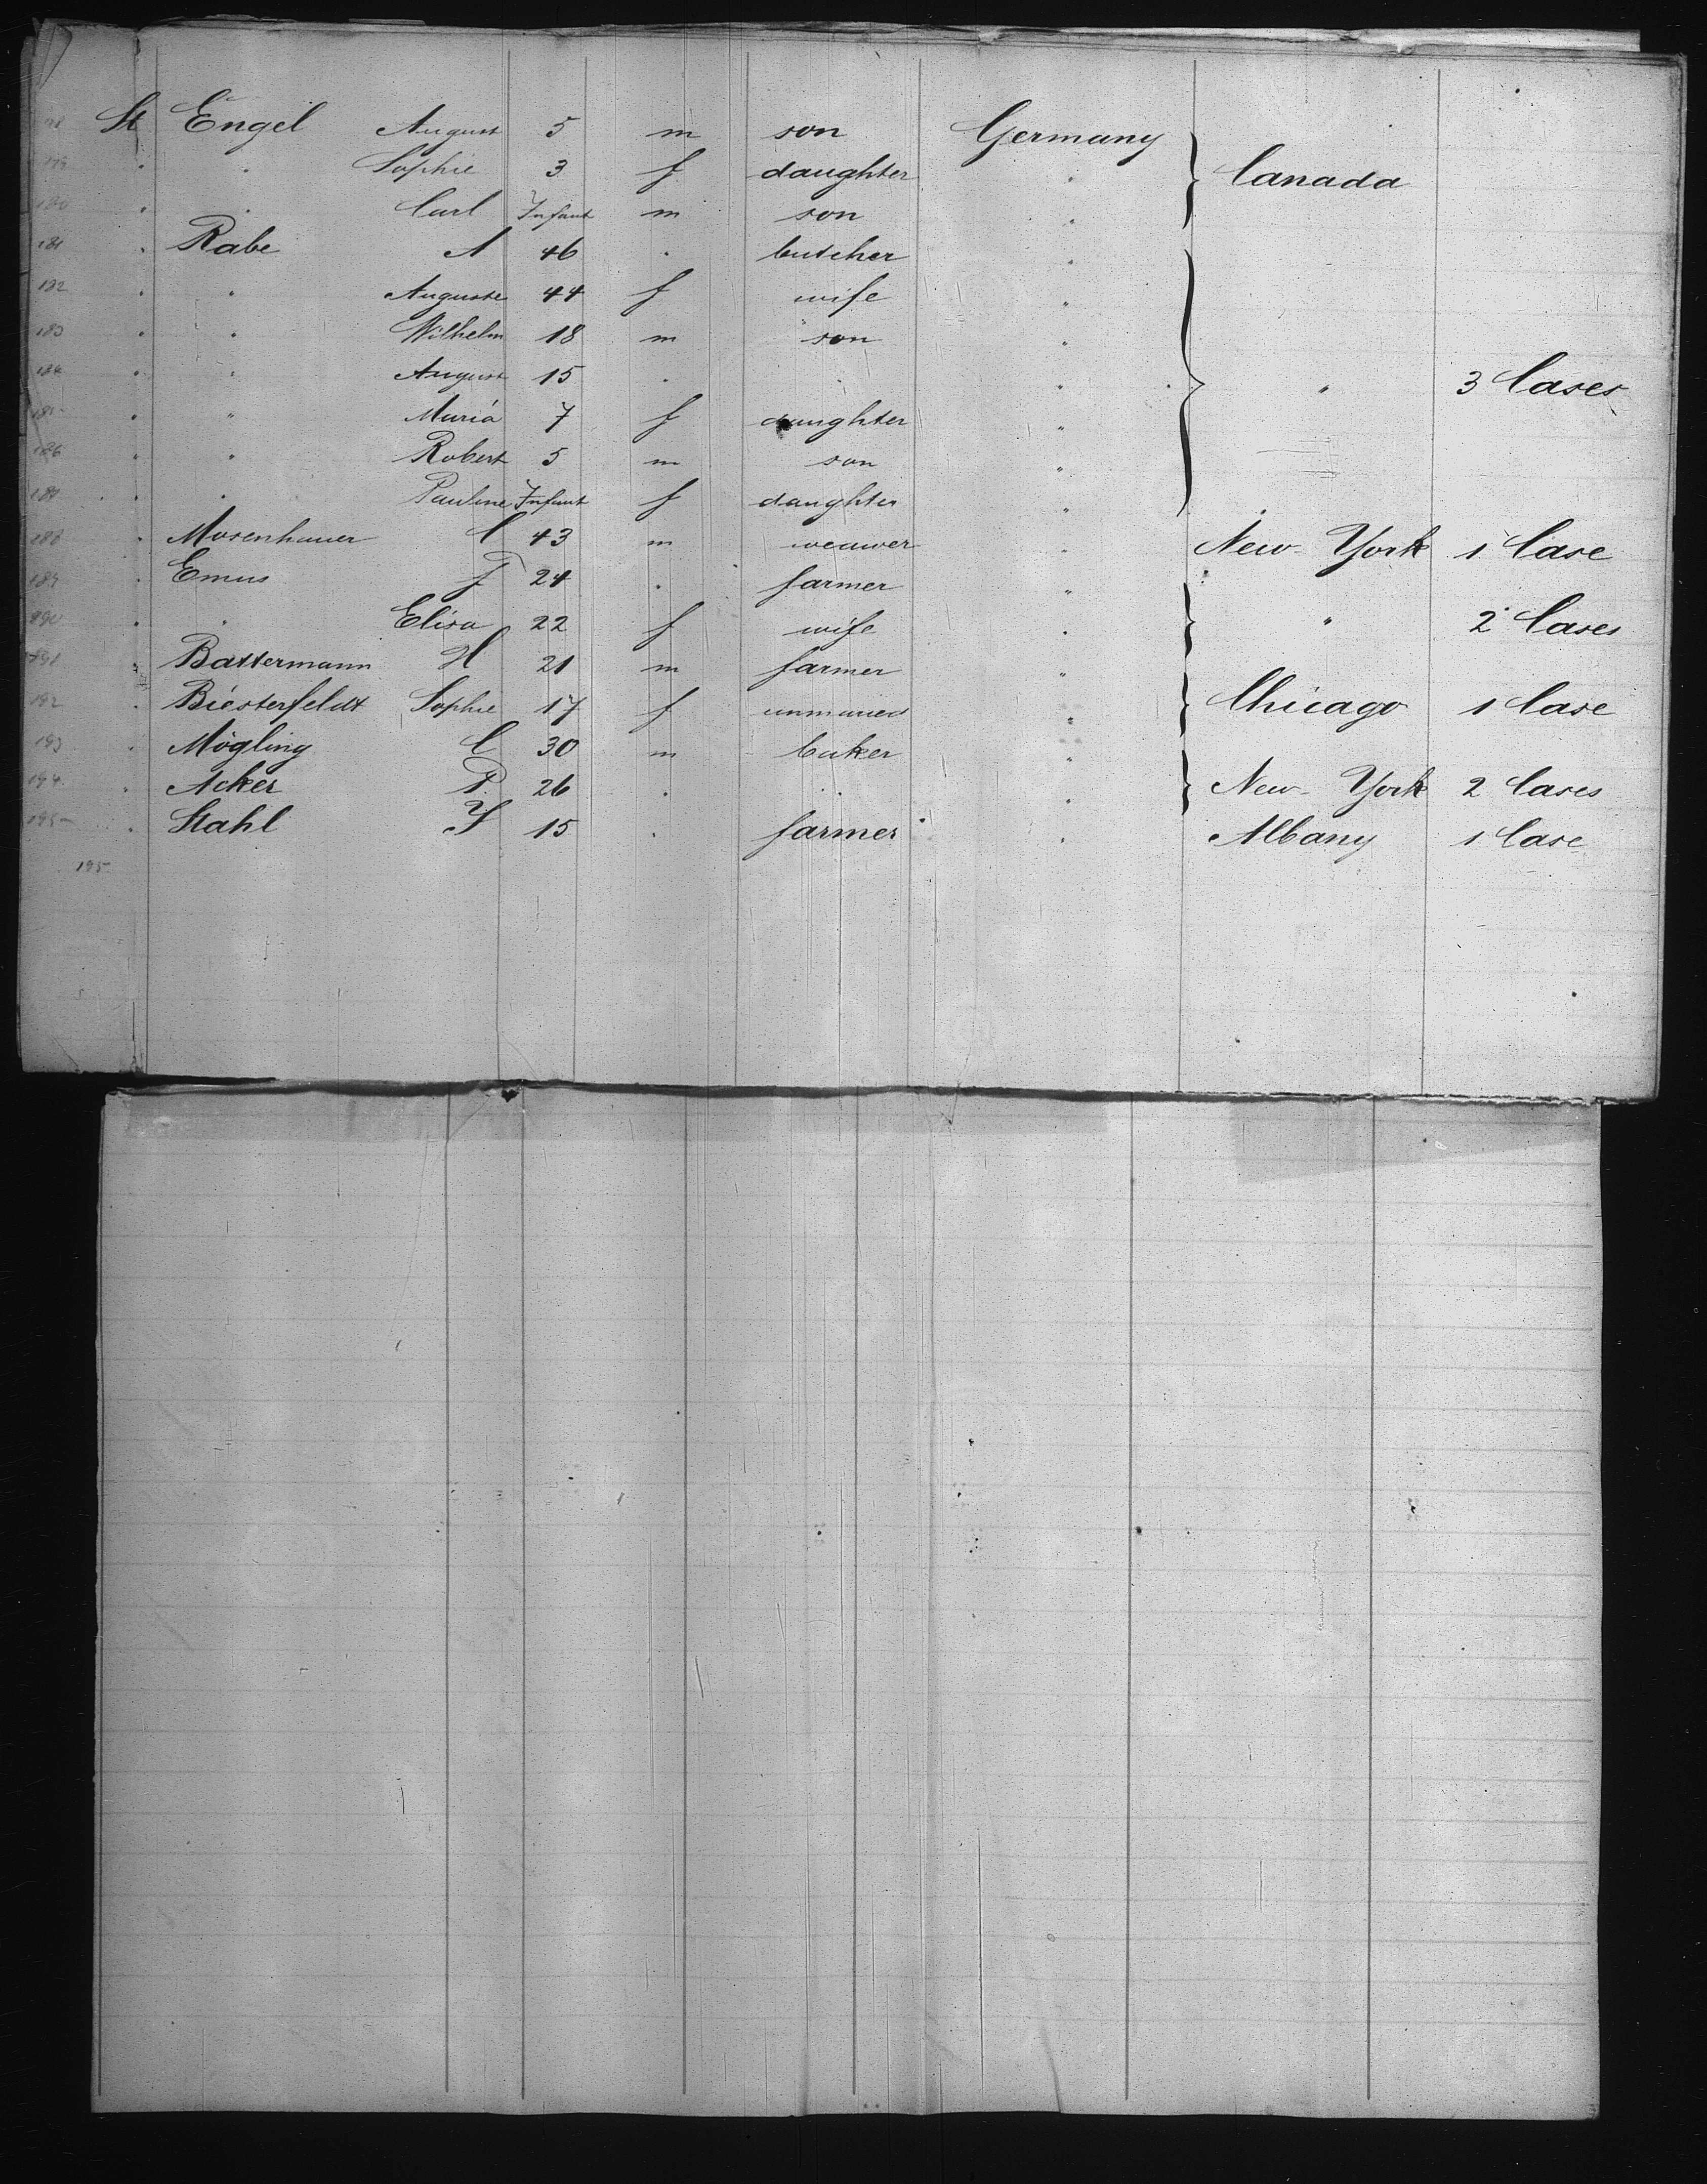 St Engel August 5 m son Germany
179 " " Sophie 3 f daughter " } Canada
180 " " Carl Infant m son "
181 " Rabe A 46 " butcher "
182 " " Auguste 44 f wife "
183 " " Wilhelm 18 m son "
184 " " August 15 " " " } " 3 Cases
185 " " Maria 7 f daughter "
186 " " Robert 5 m son "
187 " " Pauline Infant f daughter "
188 " Mosenhauer C 43 m weawer " New-York 1 Case
189 " Emus F 24 " farmer "
190 " " Elisa 22 f wife " } " 2 Cases
191 " Battermann H 21 m farmer "
192 " Biesterfeldt Sophie 17 f unmaried " } Chicago 1 Case
193 " Mögling C 30 m baker "
194 " Acker P. 26 " " " } New-York 2 Cases
195 " Stahl J 15 " farmer " Albany 1 Case
195